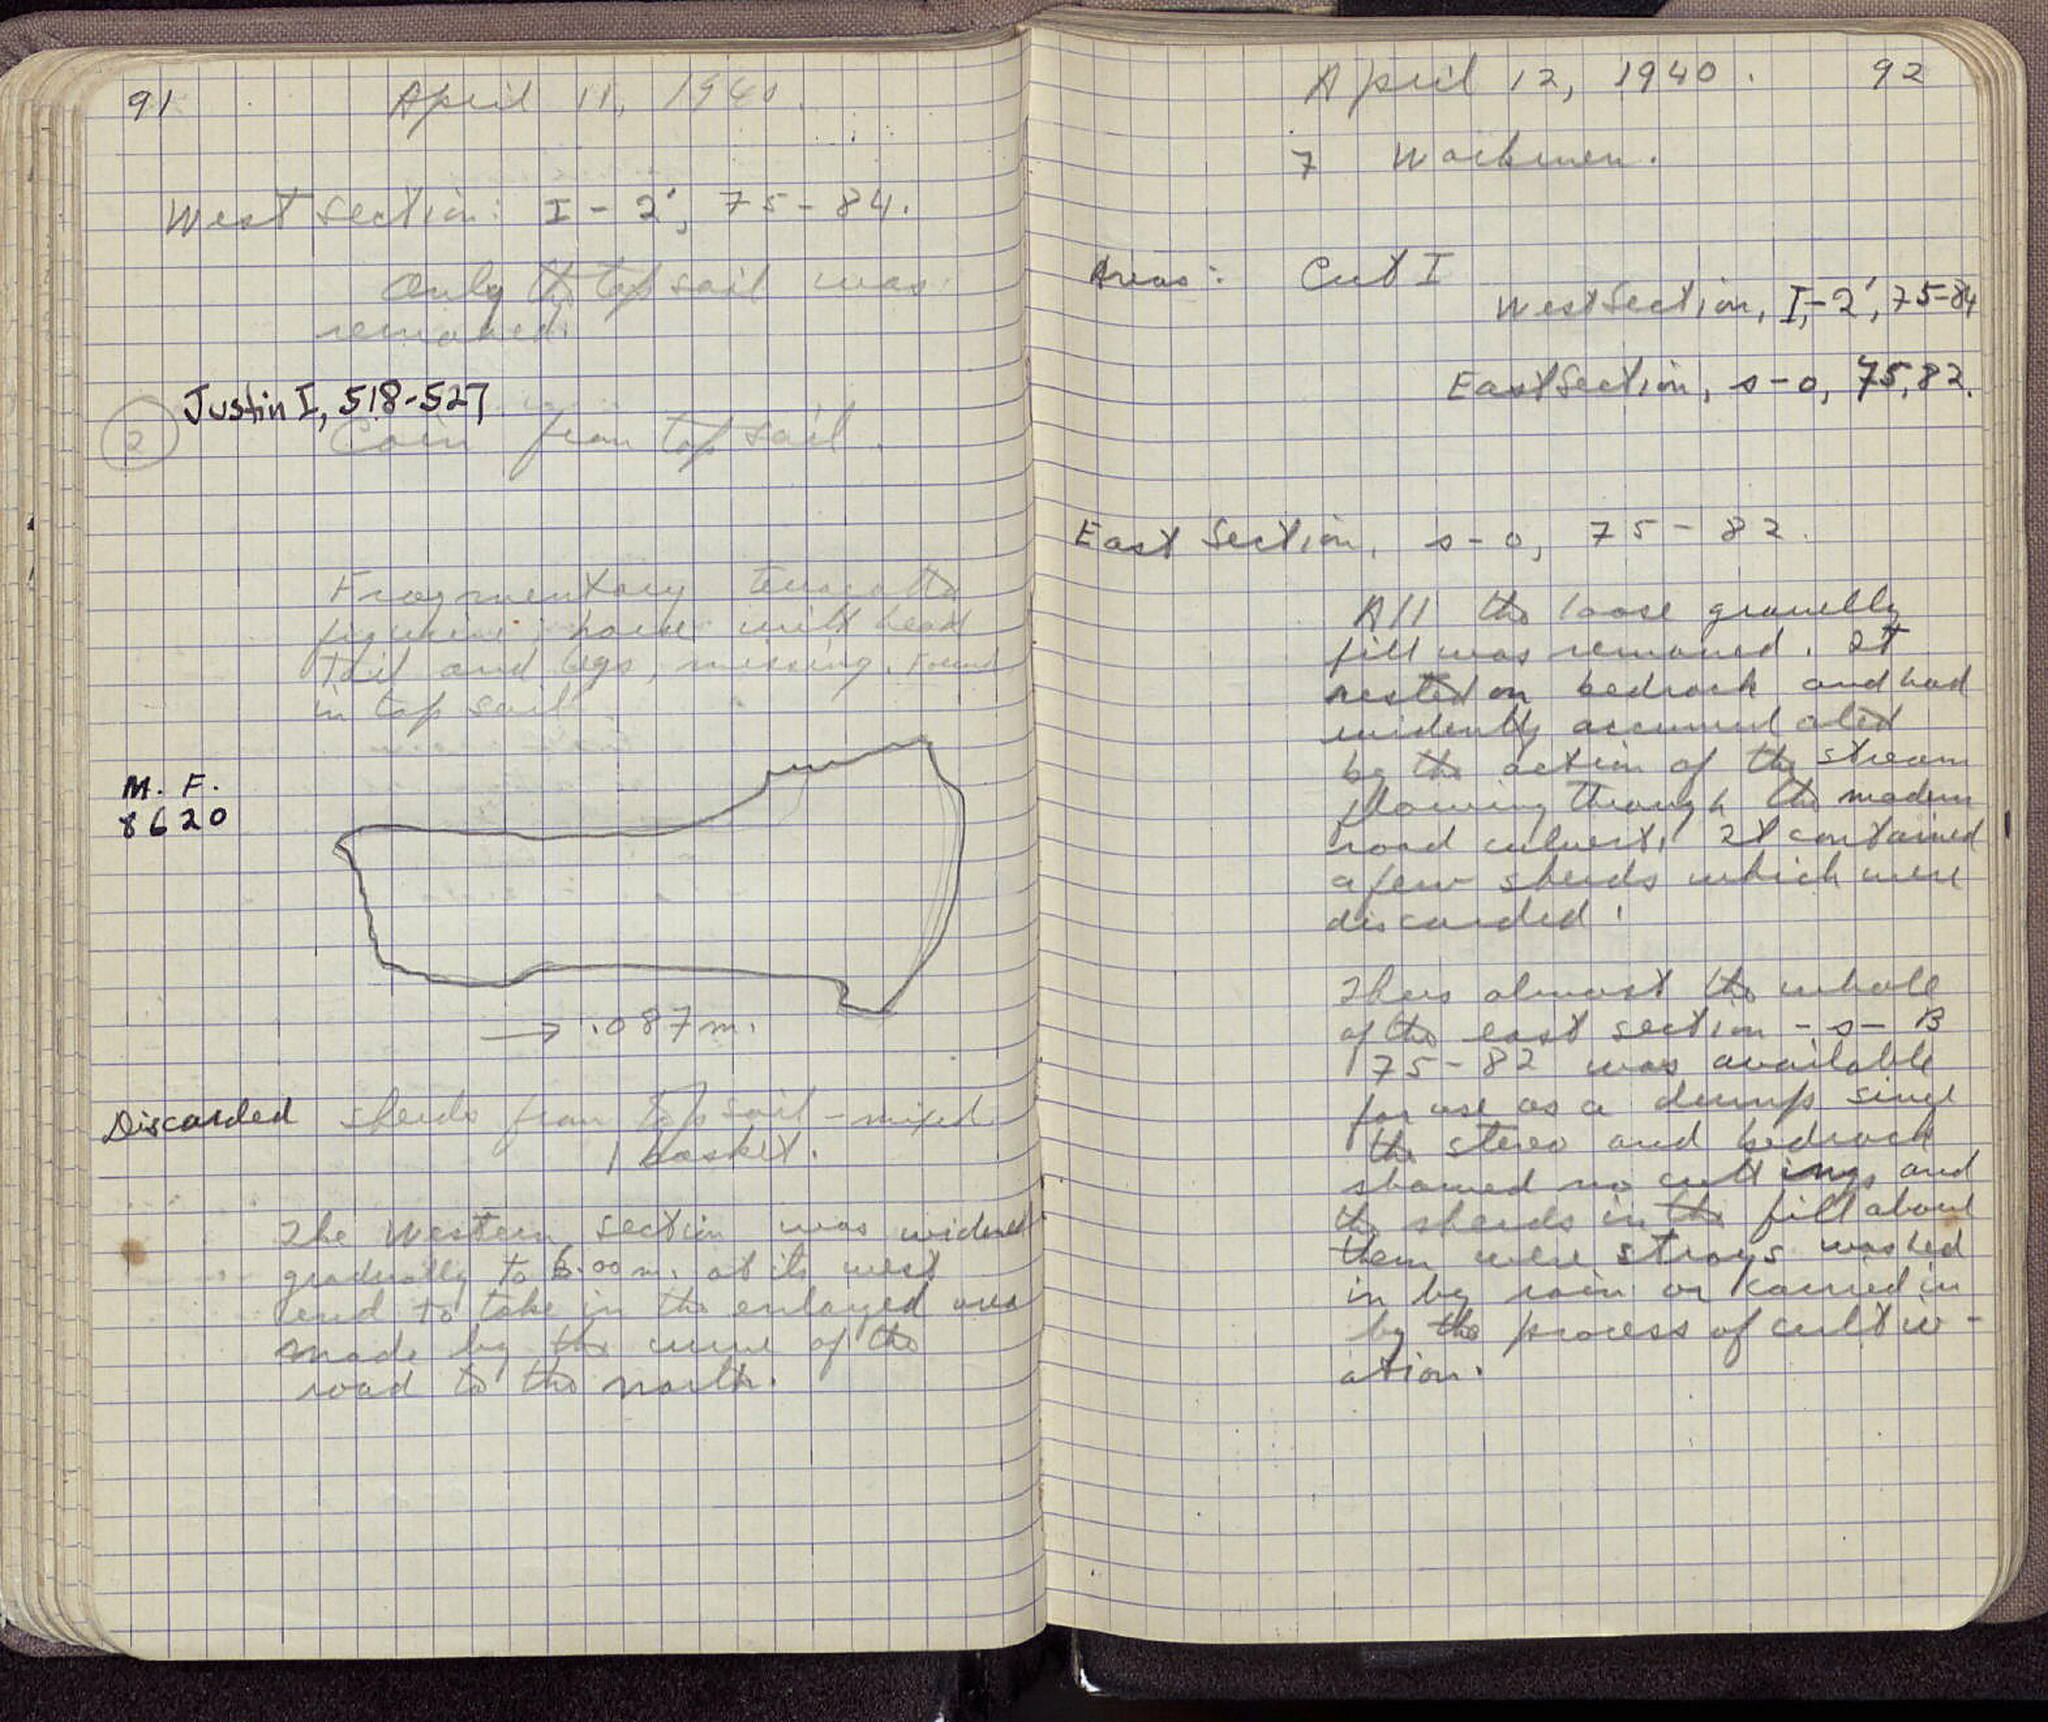 91
April 11, 1940.
West Section: I - 2', 75-84.
Only the top soil was
removed.
Justin I, 518-527
2
Coin from top soil.
Fragmentary terracotta
figurine: horse with head
tail and legs missing. Found
in top soil.
M. F.
8620
→ .087 m.
Discarded sherds from top soil - mixed.
1 basket.
The Western section was widened
gradually to 6.00 m. at its west
end to take in the enlarged area
made by the curve of the
road to the north.
April 12, 1940. 92
7 Workmen.
Areas: Cut I
West Section, I,-2', 75-84
East Section, s-o, 75,82.
East Section, s-o, 75-82.
All the loose gravelly
fill was removed. It
rested on bedrock and had
evidently accumulated
by the action of the stream
flowing through the modern
road culvert. It contained
a few sherds which were
discarded.
Thus almost the whole
of the east section - s - B
75-82 was available
for use as a dump since
the stereo and bedrock
showed no cuttings and
the sherds in the fill about
them were strays washed
in by rain or carried in
by the process of cultiv-
ation.